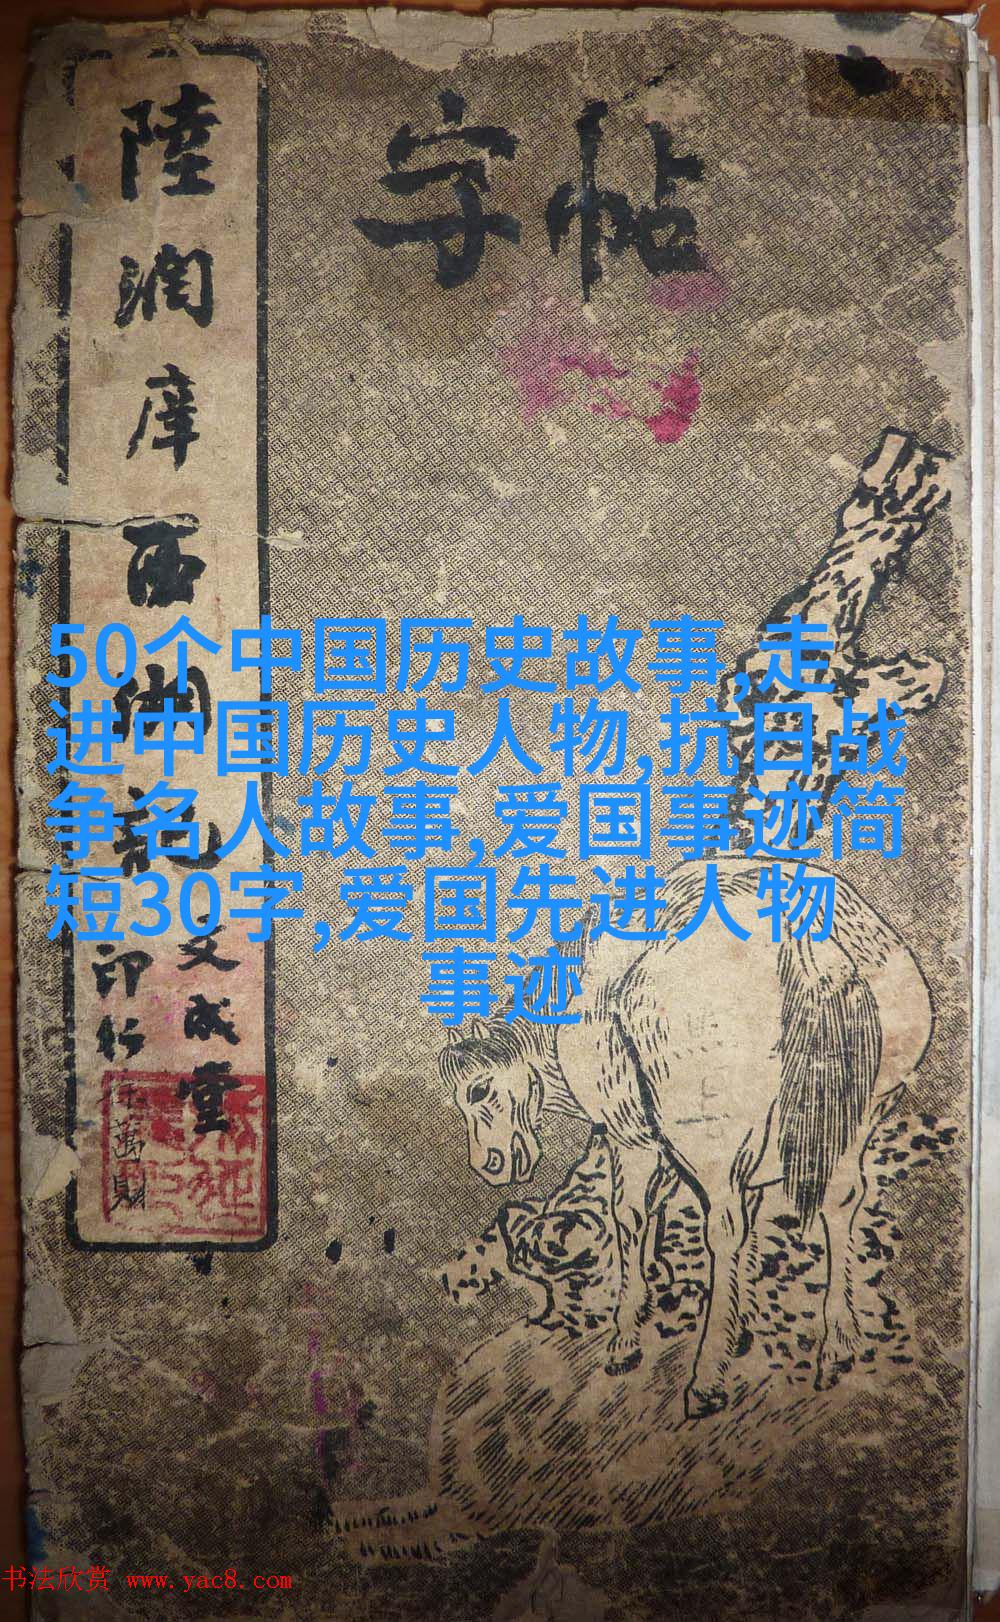 字帖
陸潤庠西湖記
文成堂
印行
徐萬財
50个中国历史故事,走
进中国历史人物,抗日战
争名人故事,爱国事迹简
短30字,爱国先进人物
事迹
书法欣赏 www.yac8.com